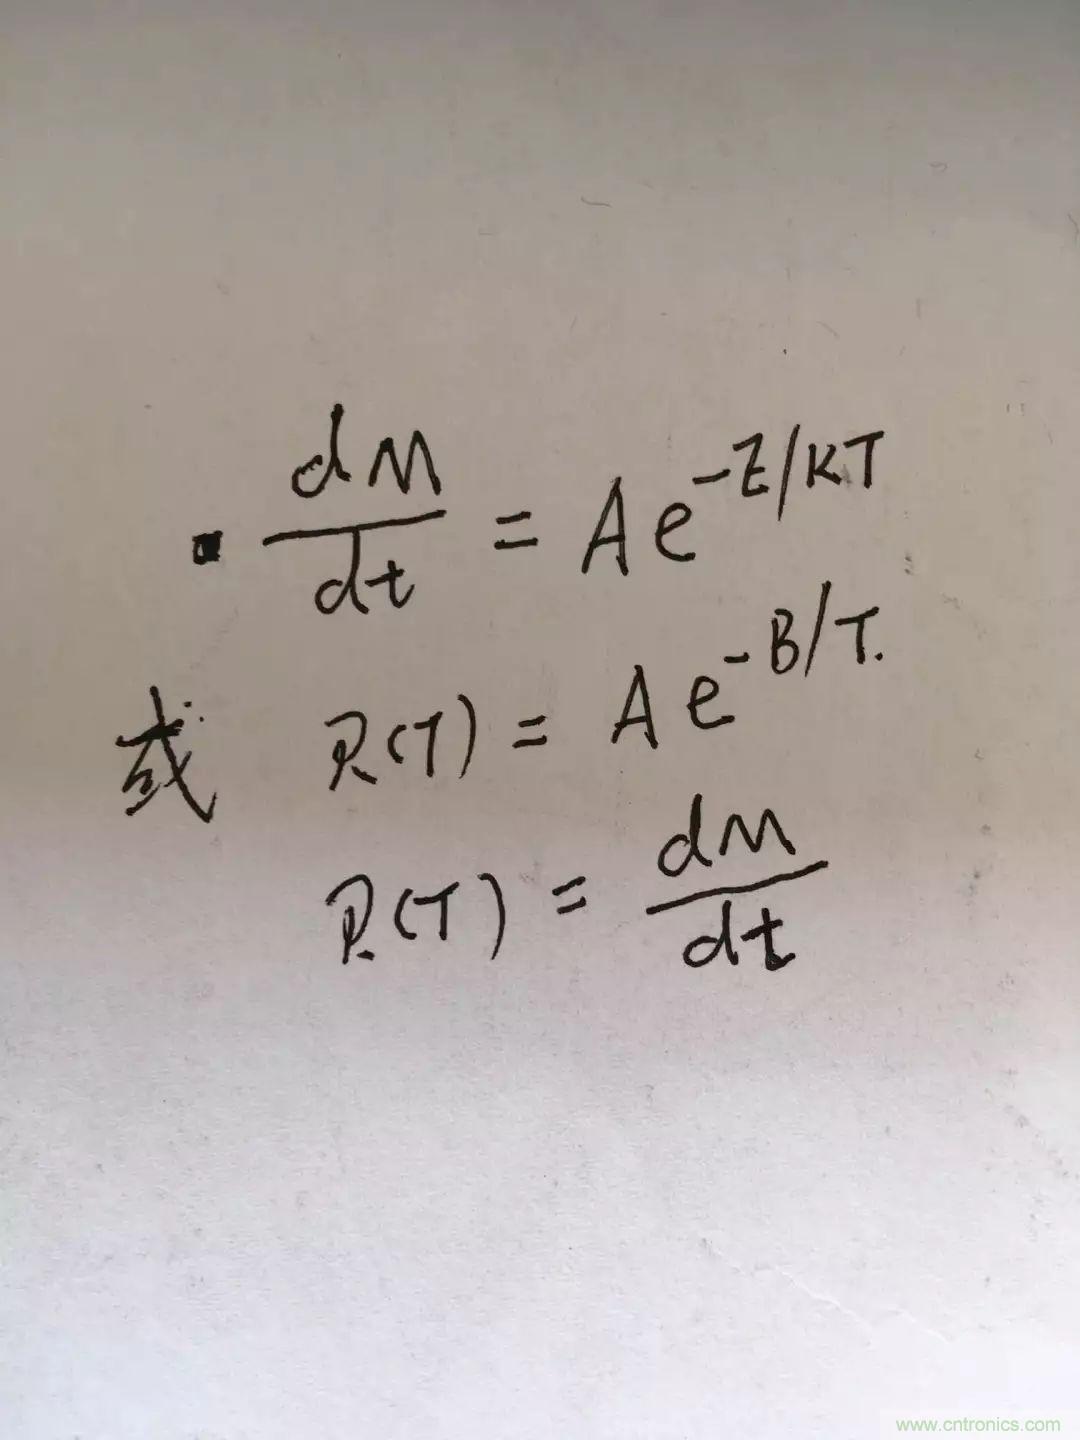 dM/dt = Ae^-E/KT
或 R(T) = Ae^-B/T.
R(T) = dM/dt
www.cntronics.com